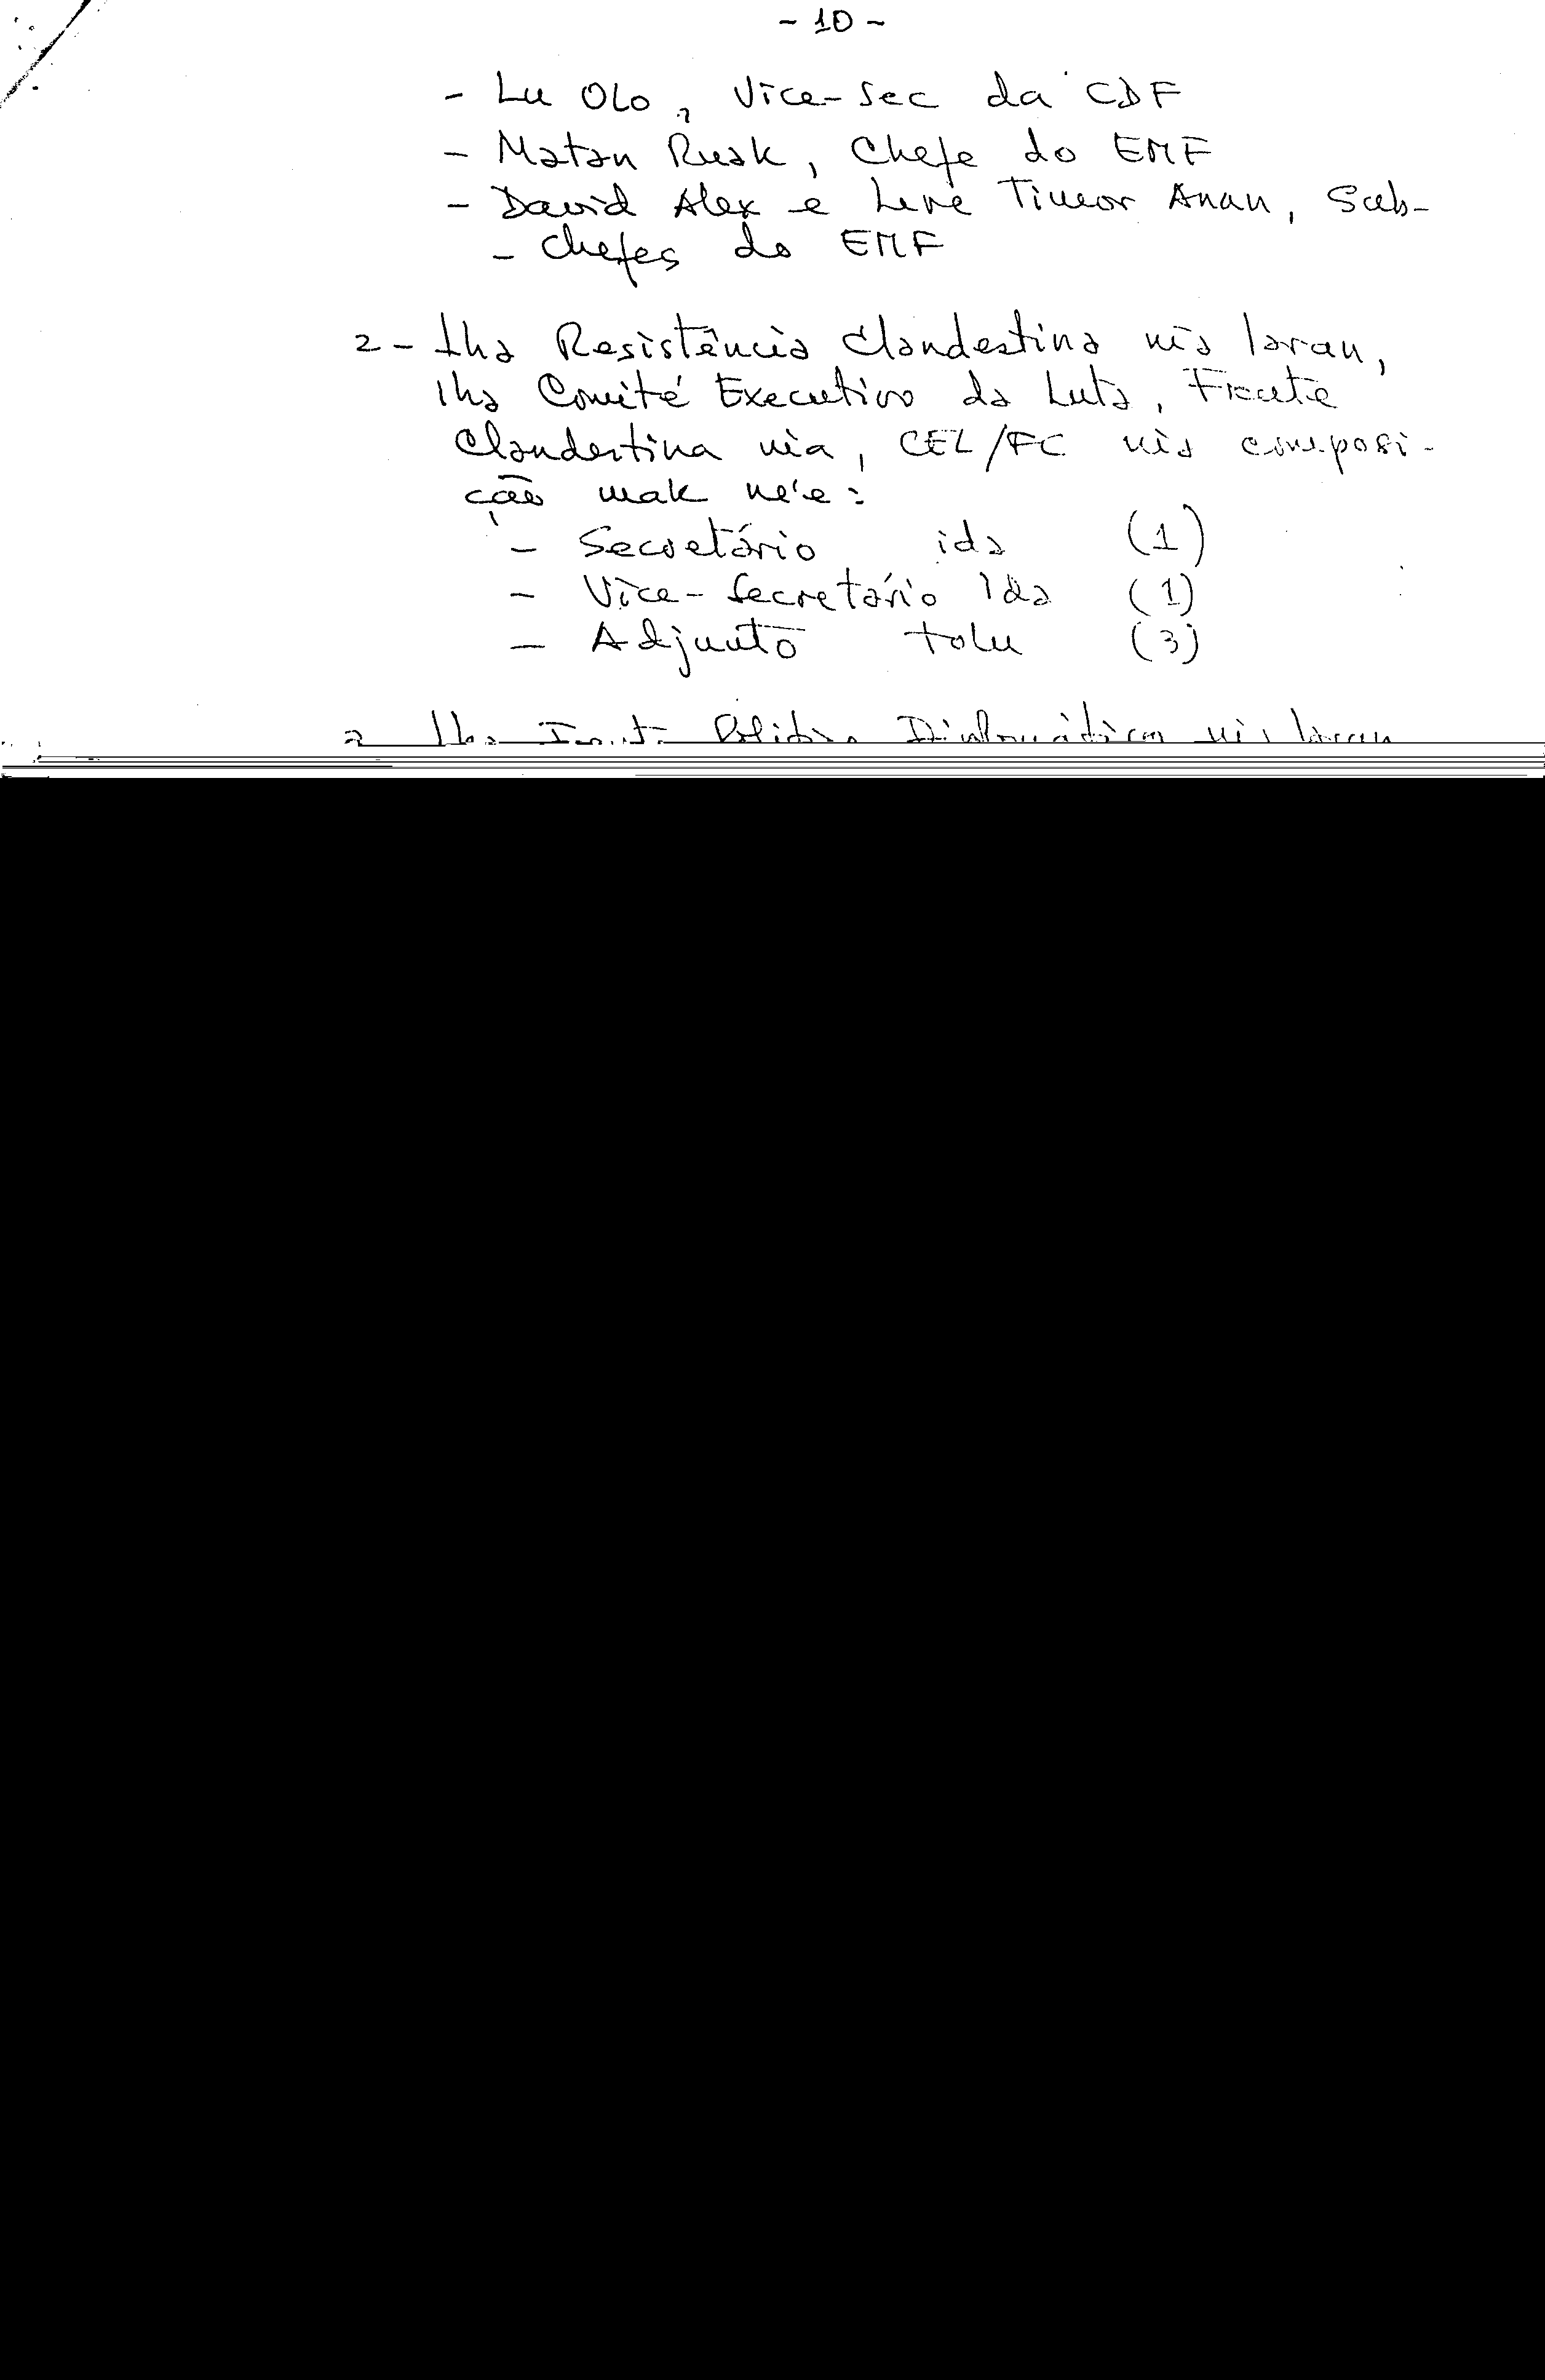 - 10 -
- Lu Olo, Vice-Sec da CDF
- Matan Ruak, Chefe do EMF
- David Alex e Lere Timor Anan, Sub-
- Chefes do EMF
2 - Iha Resistência Clandestina nia laran,
Iha Comité Executivo da Luta, Frente
Clandestina nia, CEL/FC nia composi-
ção mak ne'e:
- Secretário ida (1)
- Vice-Secretário Ida (1)
- Adjunto tolu (3)
Iha Política Diplomática nia laran